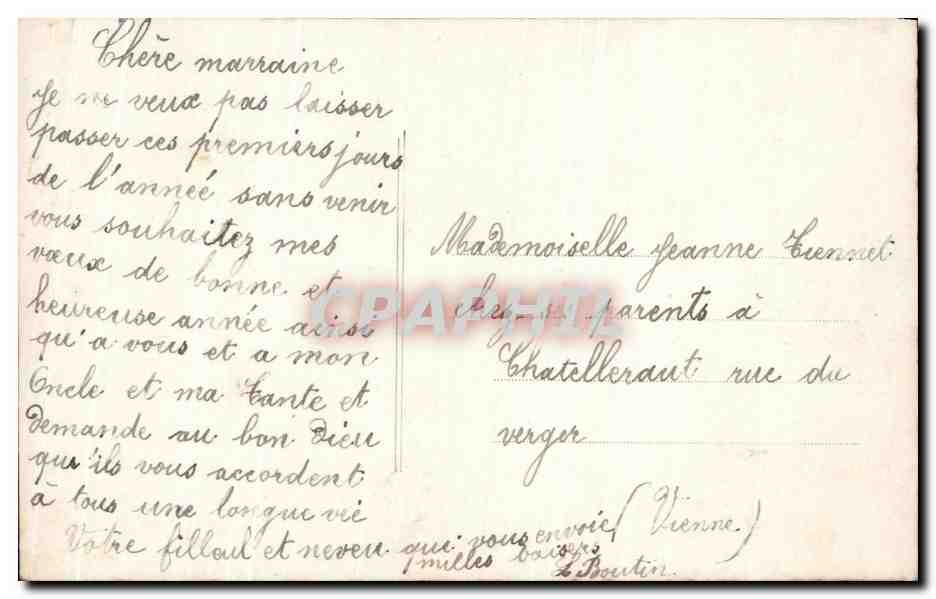 Chère marraine
Je ne veux pas laisser
passer ces premiers jours
de l'année sans venir
vous souhaitez mes
vœux de bonne et
heureuse année ainsi
qu'a vous et a mon
Oncle et ma Tante et
demande au bon Dieu
qu'ils vous accordent
à tous une longue vie
Votre filleul et neveu qui vous envoie
milles baisers
L Boutin.
Mademoiselle Jeanne Tiennet
chez ses parents à
Chatelleraut rue du
verger
(Vienne.)
CPAPHIL